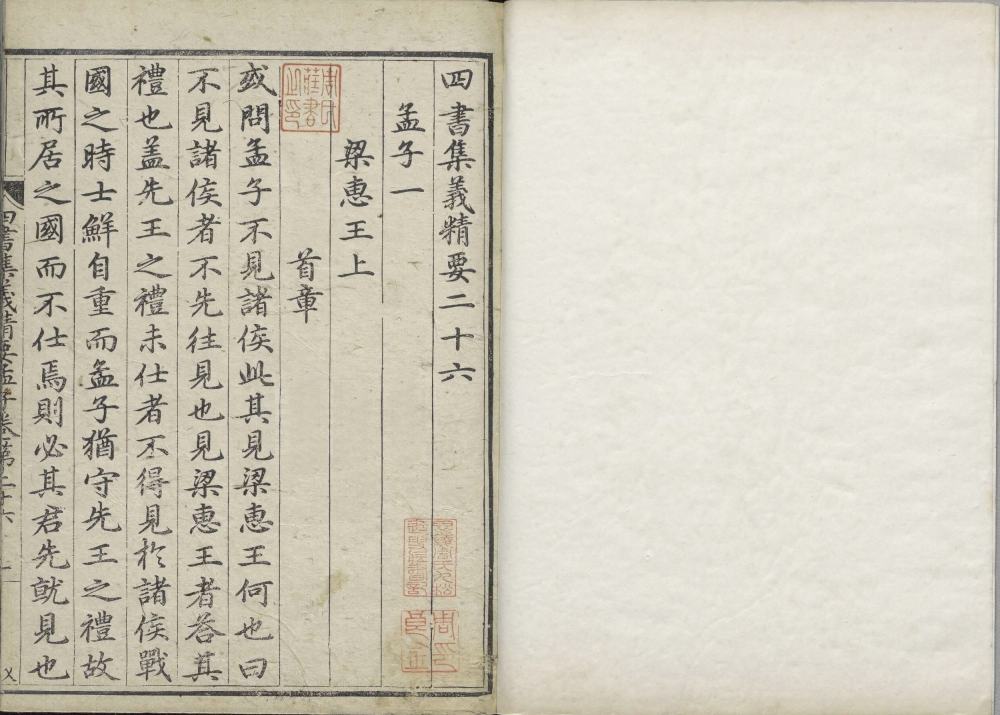 四書集義精要二十六
孟子一
梁惠王上
首章
或問孟子不見諸侯此其見梁惠王何也曰
不見諸侯者不先往見也見梁惠王者答其
禮也盖先王之禮未仕者不得見於諸侯戰
國之時士鮮自重而孟子猶守先王之禮故
其所居之國而不仕焉則必其君先就見也
四書集義精要孟子卷第二十六 一